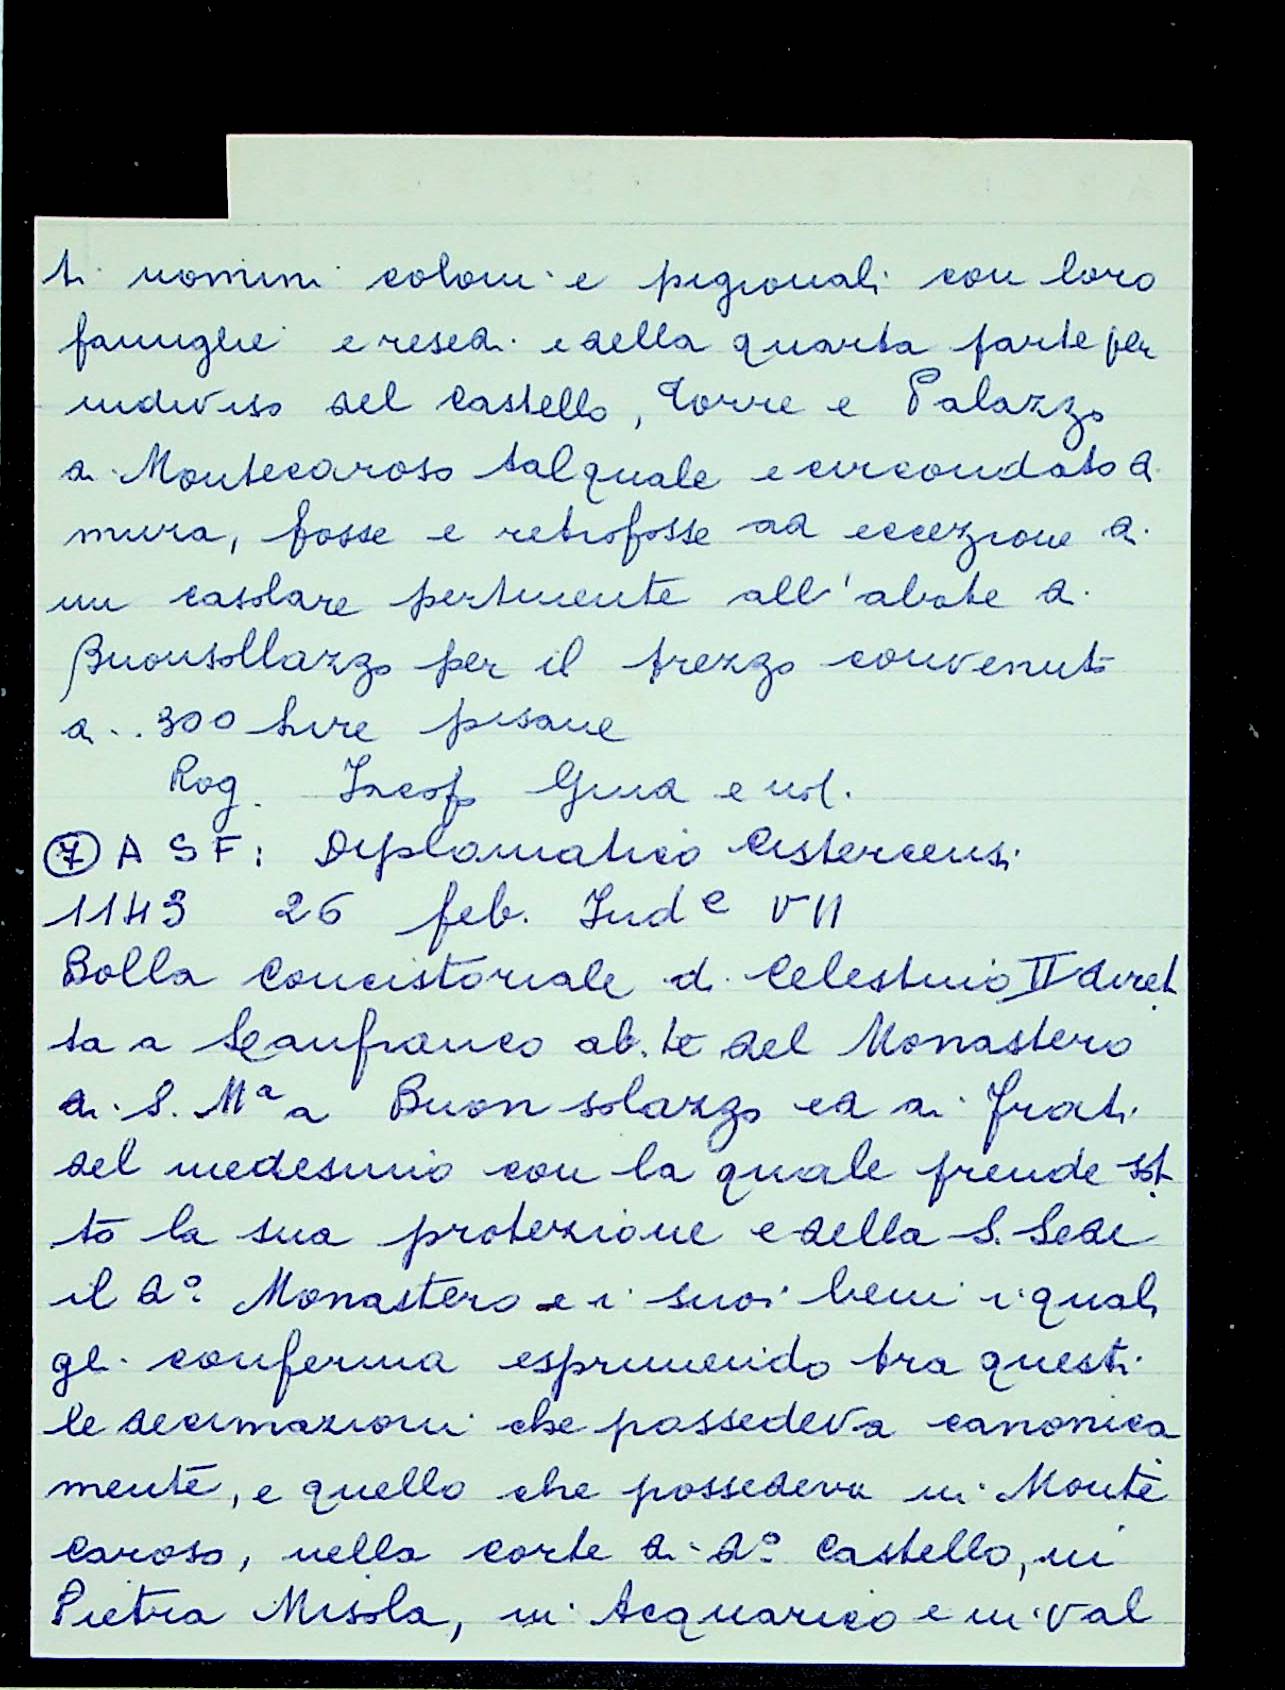 ti uomini coloni e pigionali con loro
famiglie e resedi e della quarta parte per
indiviso del Castello, Torre e Palazzo
di Montecaroso tal quale e circondato di
mura, fosse e retrofosse ad eccezione di
un casolare pertinente all'abate di
Buonsollazzo per il prezzo convenuto
di.. 300 Lire pisane
Rog. Jacop Guid e not.
(7) A S F: Diplomatico Cistercensi
1143 26 feb. Ind e VII
Bolla Concistoriale di Celestino II diret
ta a Leanfranco ab.te del Monastero
di S. Mª a Buonsolazzo ed ai Frati
del medesimo con la quale prende sot
to la sua protezione e della S. Sede
il dº: Monastero e i suoi beni i quali
gli conferma esprimendo tra questi
le decimazioni che possedeva canonica
mente, e quello che possedeva in Monte
caroso, nella corte di dº: Castello, in
Pietra Misola, in Acquarico e in Val